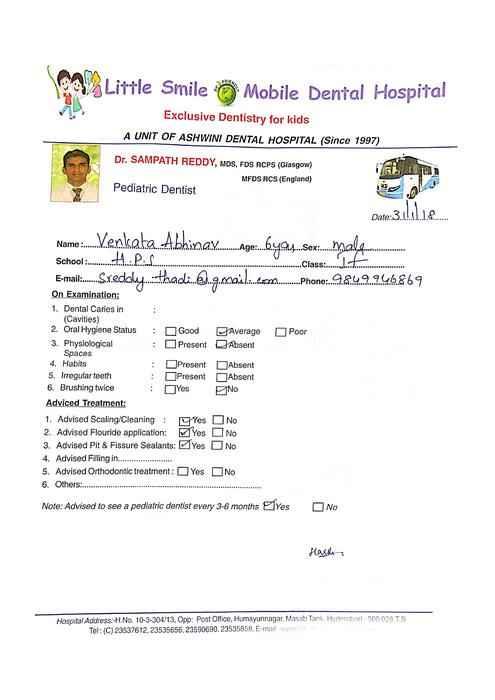 Little Smile Mobile Dental Hospital
Exclusive Dentistry for kids
A UNIT OF ASHWINI DENTAL HOSPITAL (Since 1997)
Dr. SAMPATH REDDY, MDS, FDS RCPS (Glasgow)
MFDS RCS (England)
Pediatric Dentist
Date: 3/1/18
Name: Venkata Abhinav Age: 6yrs Sex: male
School: H.P.S Class: I F
E-mail: Sreddy thadi@gmail.com Phone: 9849946869
On Examination:
1. Dental Caries in :
(Cavities)
2. Oral Hygiene Status : Good Average Poor
3. Physiological : Present Absent
Spaces
4. Habits : Present Absent
5. Irregular teeth : Present Absent
6. Brushing twice : Yes No
Adviced Treatment:
1. Advised Scaling/Cleaning : Yes No
2. Advised Flouride application: Yes No
3. Advised Pit & Fissure Sealants: Yes No
4. Advised Filling in
5. Advised Orthodontic treatment : Yes No
6. Others:
Note: Advised to see a pediatric dentist every 3-6 months Yes No
Hospital Address:-H.No. 10-3-304/13, Opp: Post Office, Humayunnagar, Masab Tank, Hyderabad - 500 028 T.S
Tel : (C) 23537612, 23535656, 23590690, 23535858, E-mail